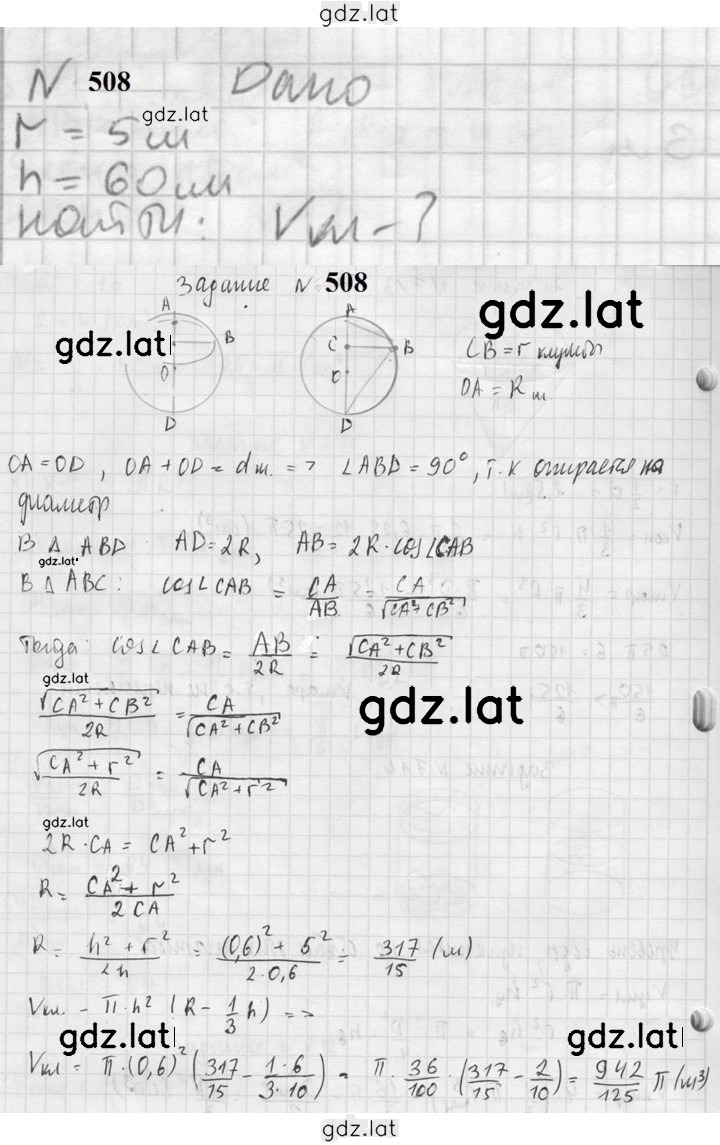 gdz.lat
N 508 Дано
gdz.lat
r = 5 м
h = 60 см
найти: Vкл - ?
Задание N 508
gdz.lat
gdz.lat
A
B
O
D
A
C
B
O
D
CB = r клумбы
OA = R ш.
OA = OD, OA + OD = d ш. => ∠ABD = 90°, т.к опирается на
диаметр
В Δ ABD AD = 2R, AB = 2R · cos∠CAB
gdz.lat
В Δ ABC: cos∠CAB = CA/AB = CA/√(CA²+CB²)
Тогда: cos∠CAB = AB/2R = √(CA²+CB²)/2R
gdz.lat
√(CA²+CB²)/2R = CA/√(CA²+CB²)
gdz.lat
√(CA²+r²)/2R = CA/√(CA²+r²)
gdz.lat
2R·CA = CA²+r²
R = (CA²+r²)/2CA
R = (h²+r²)/2h = ((0,6)²+5²)/(2·0,6) = 317/15 (м)
Vкл. - π·h² (R - 1/3 h) =>
gdz.lat
gdz.lat
Vкл = π·(0,6)² (317/15 - 1·6/3·10) = π · 36/100 · (317/15 - 2/10) = 942/125 π (м³)
gdz.lat